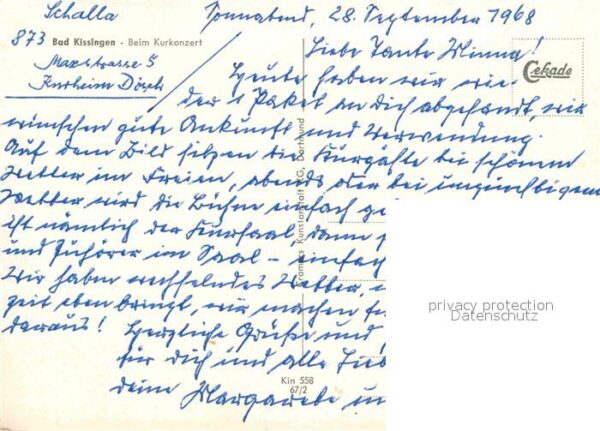 Schalla
Sonnabend, 28. September 1968
873 Bad Kissingen - Beim Kurkonzert
Maxstrasse 5
Kurheim
Liebe Tante Minna!
Cekade
Heute haben wir wie-
der 1 Paket an Dich abgesandt, wir
wünschen gute Ankunft und Verwendung.
Auf dem Bild sitzen die Kurgäste bei schönem
Wetter im Freien, abends oder bei ungünstigem
Wetter wird die Bühne einfach ge
ist nämlich der Kursaal, dann
und Zuhörer im Saal - einfach
Wir haben wechselndes Wetter,
zeit eben bringt, wir machen
daraus! Herzliche Grüße und
für Dich und alle Lieb
deine Margarete
Kramers Kunstanstalt KG, Dortmund
Kin 558
67/2
privacy protection
Datenschutz